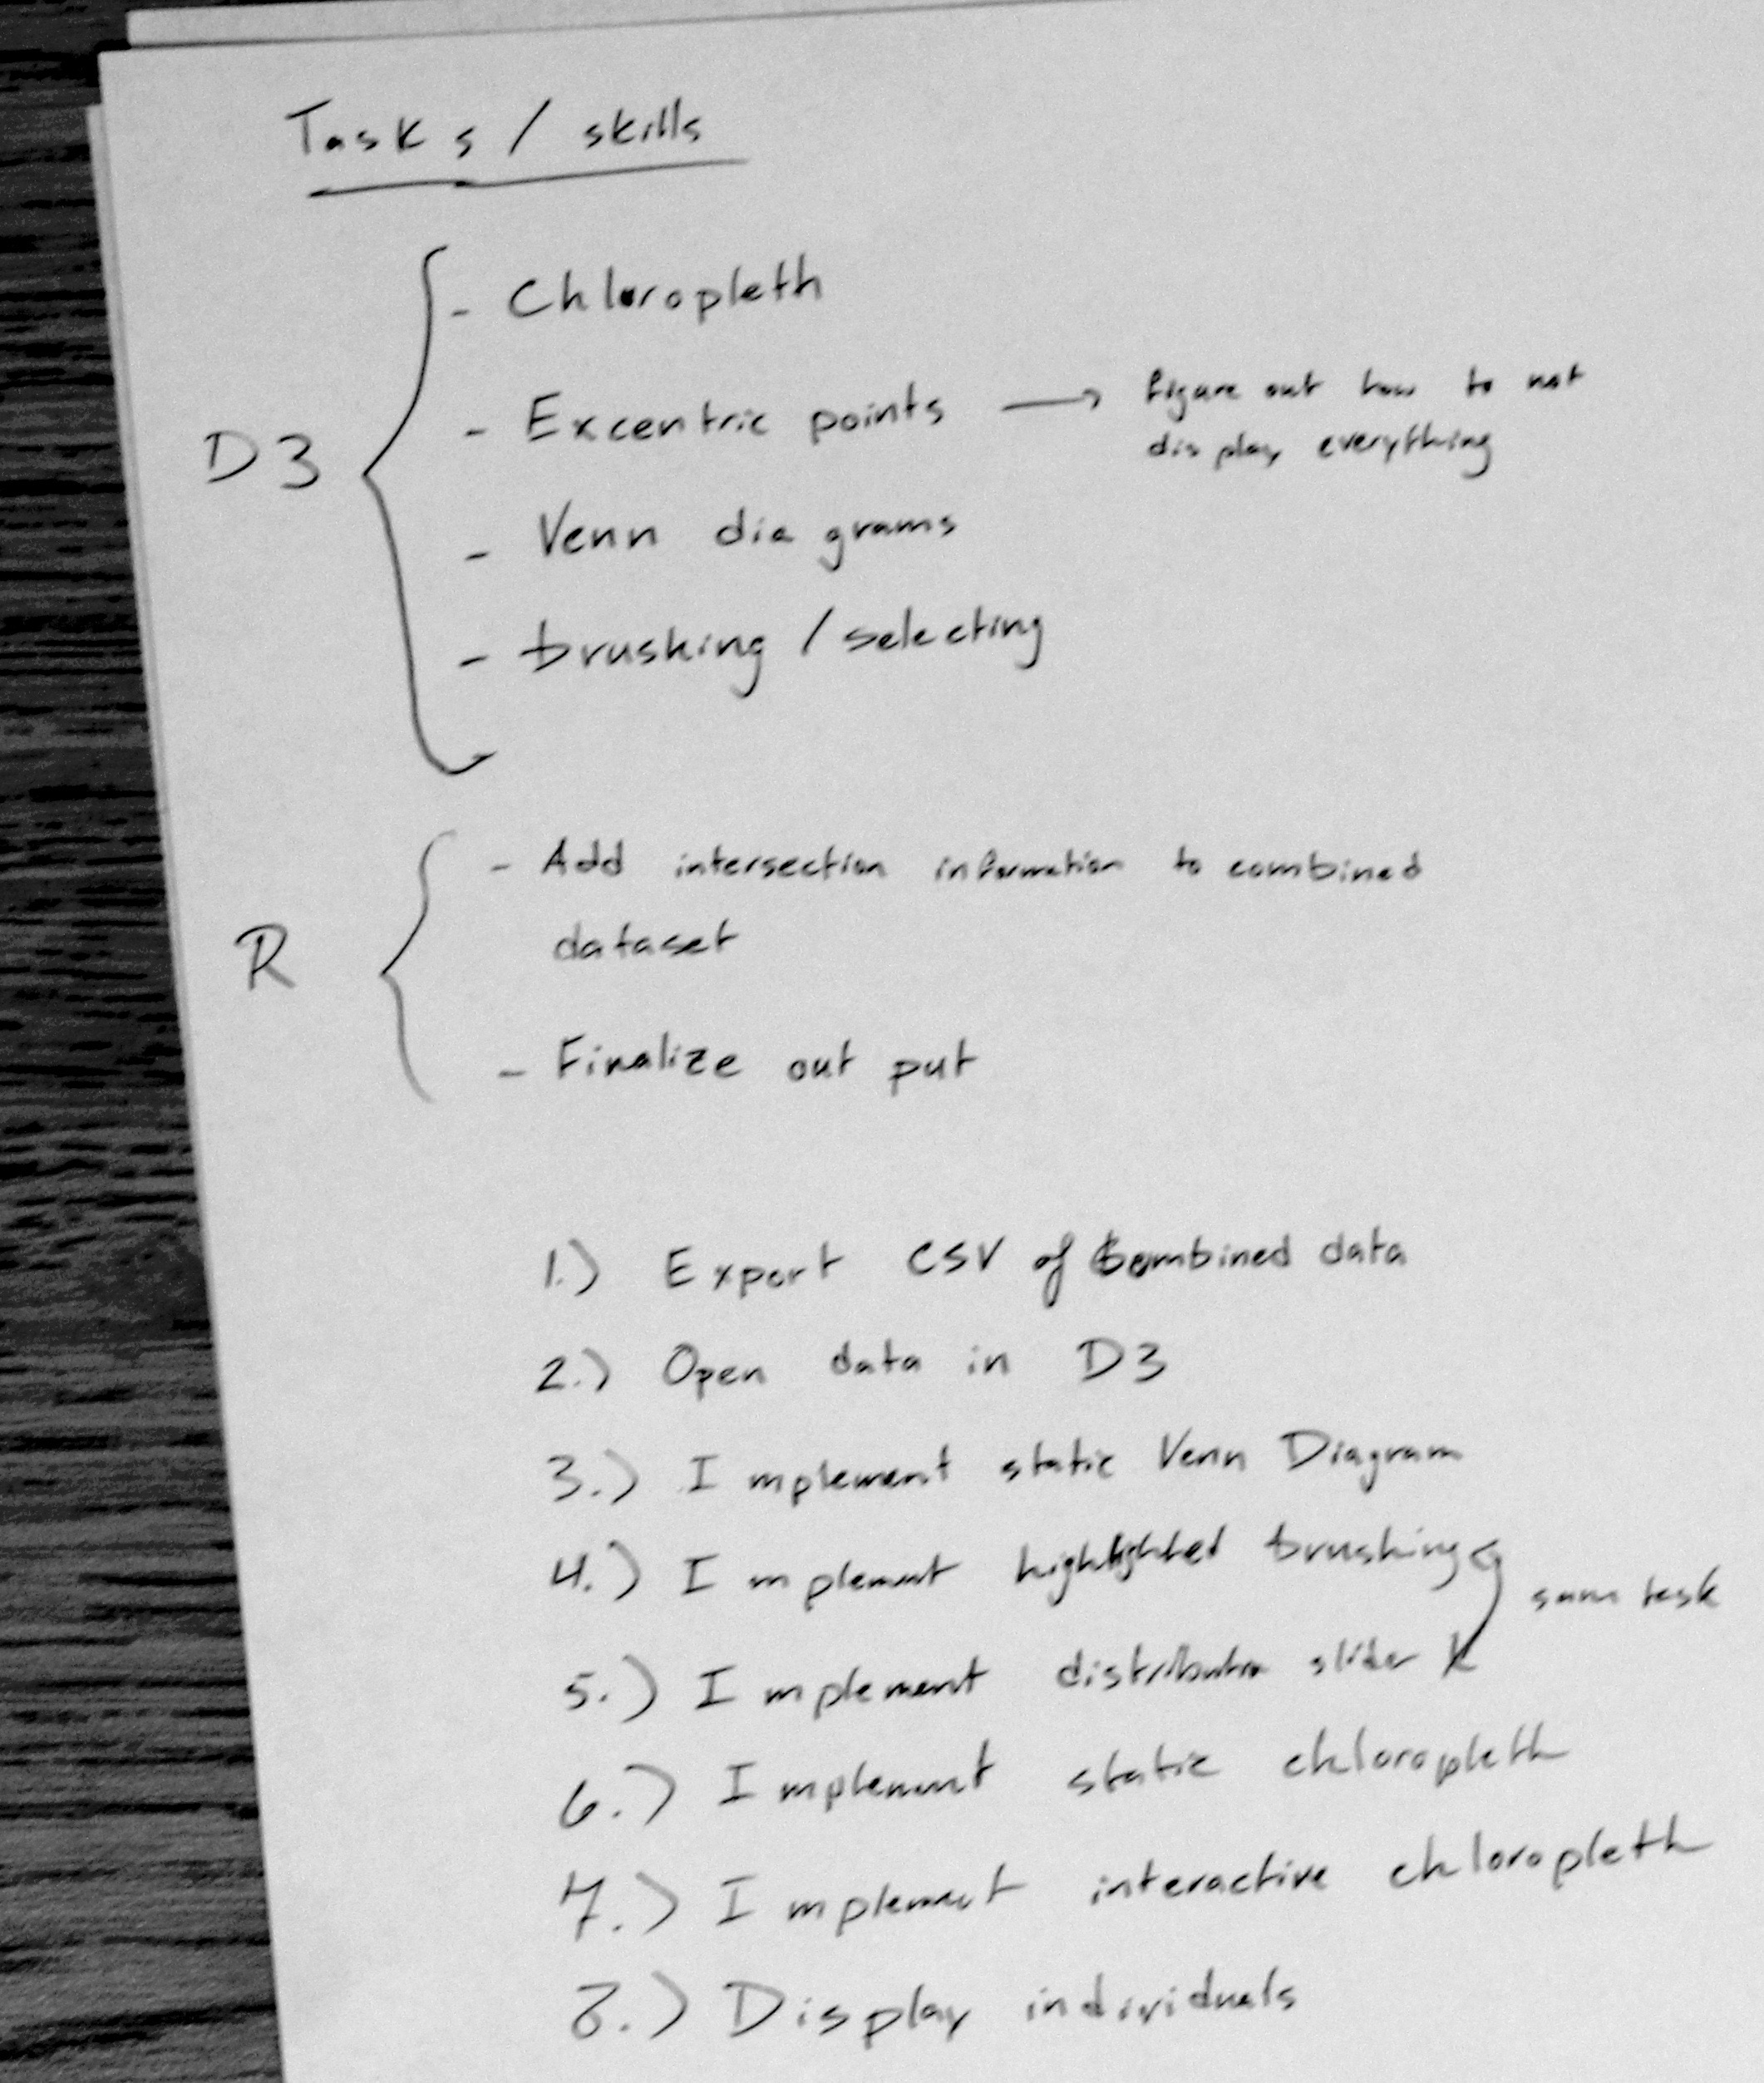 Tasks / skills
D3
- Chloropleth
- Excentric points → figure out how to not
display everything
- Venn diagrams
- brushing / selecting
R
- Add intersection information to combined
dataset
- Finalize out put
1.) Export CSV of combined data
2.) Open data in D3
3.) Implement static Venn Diagram
4.) Implement highlighted brushing
same task
5.) Implement distribution slider
6.) Implement static chloropleth
7.) Implement interactive chloropleth
8.) Display individuals